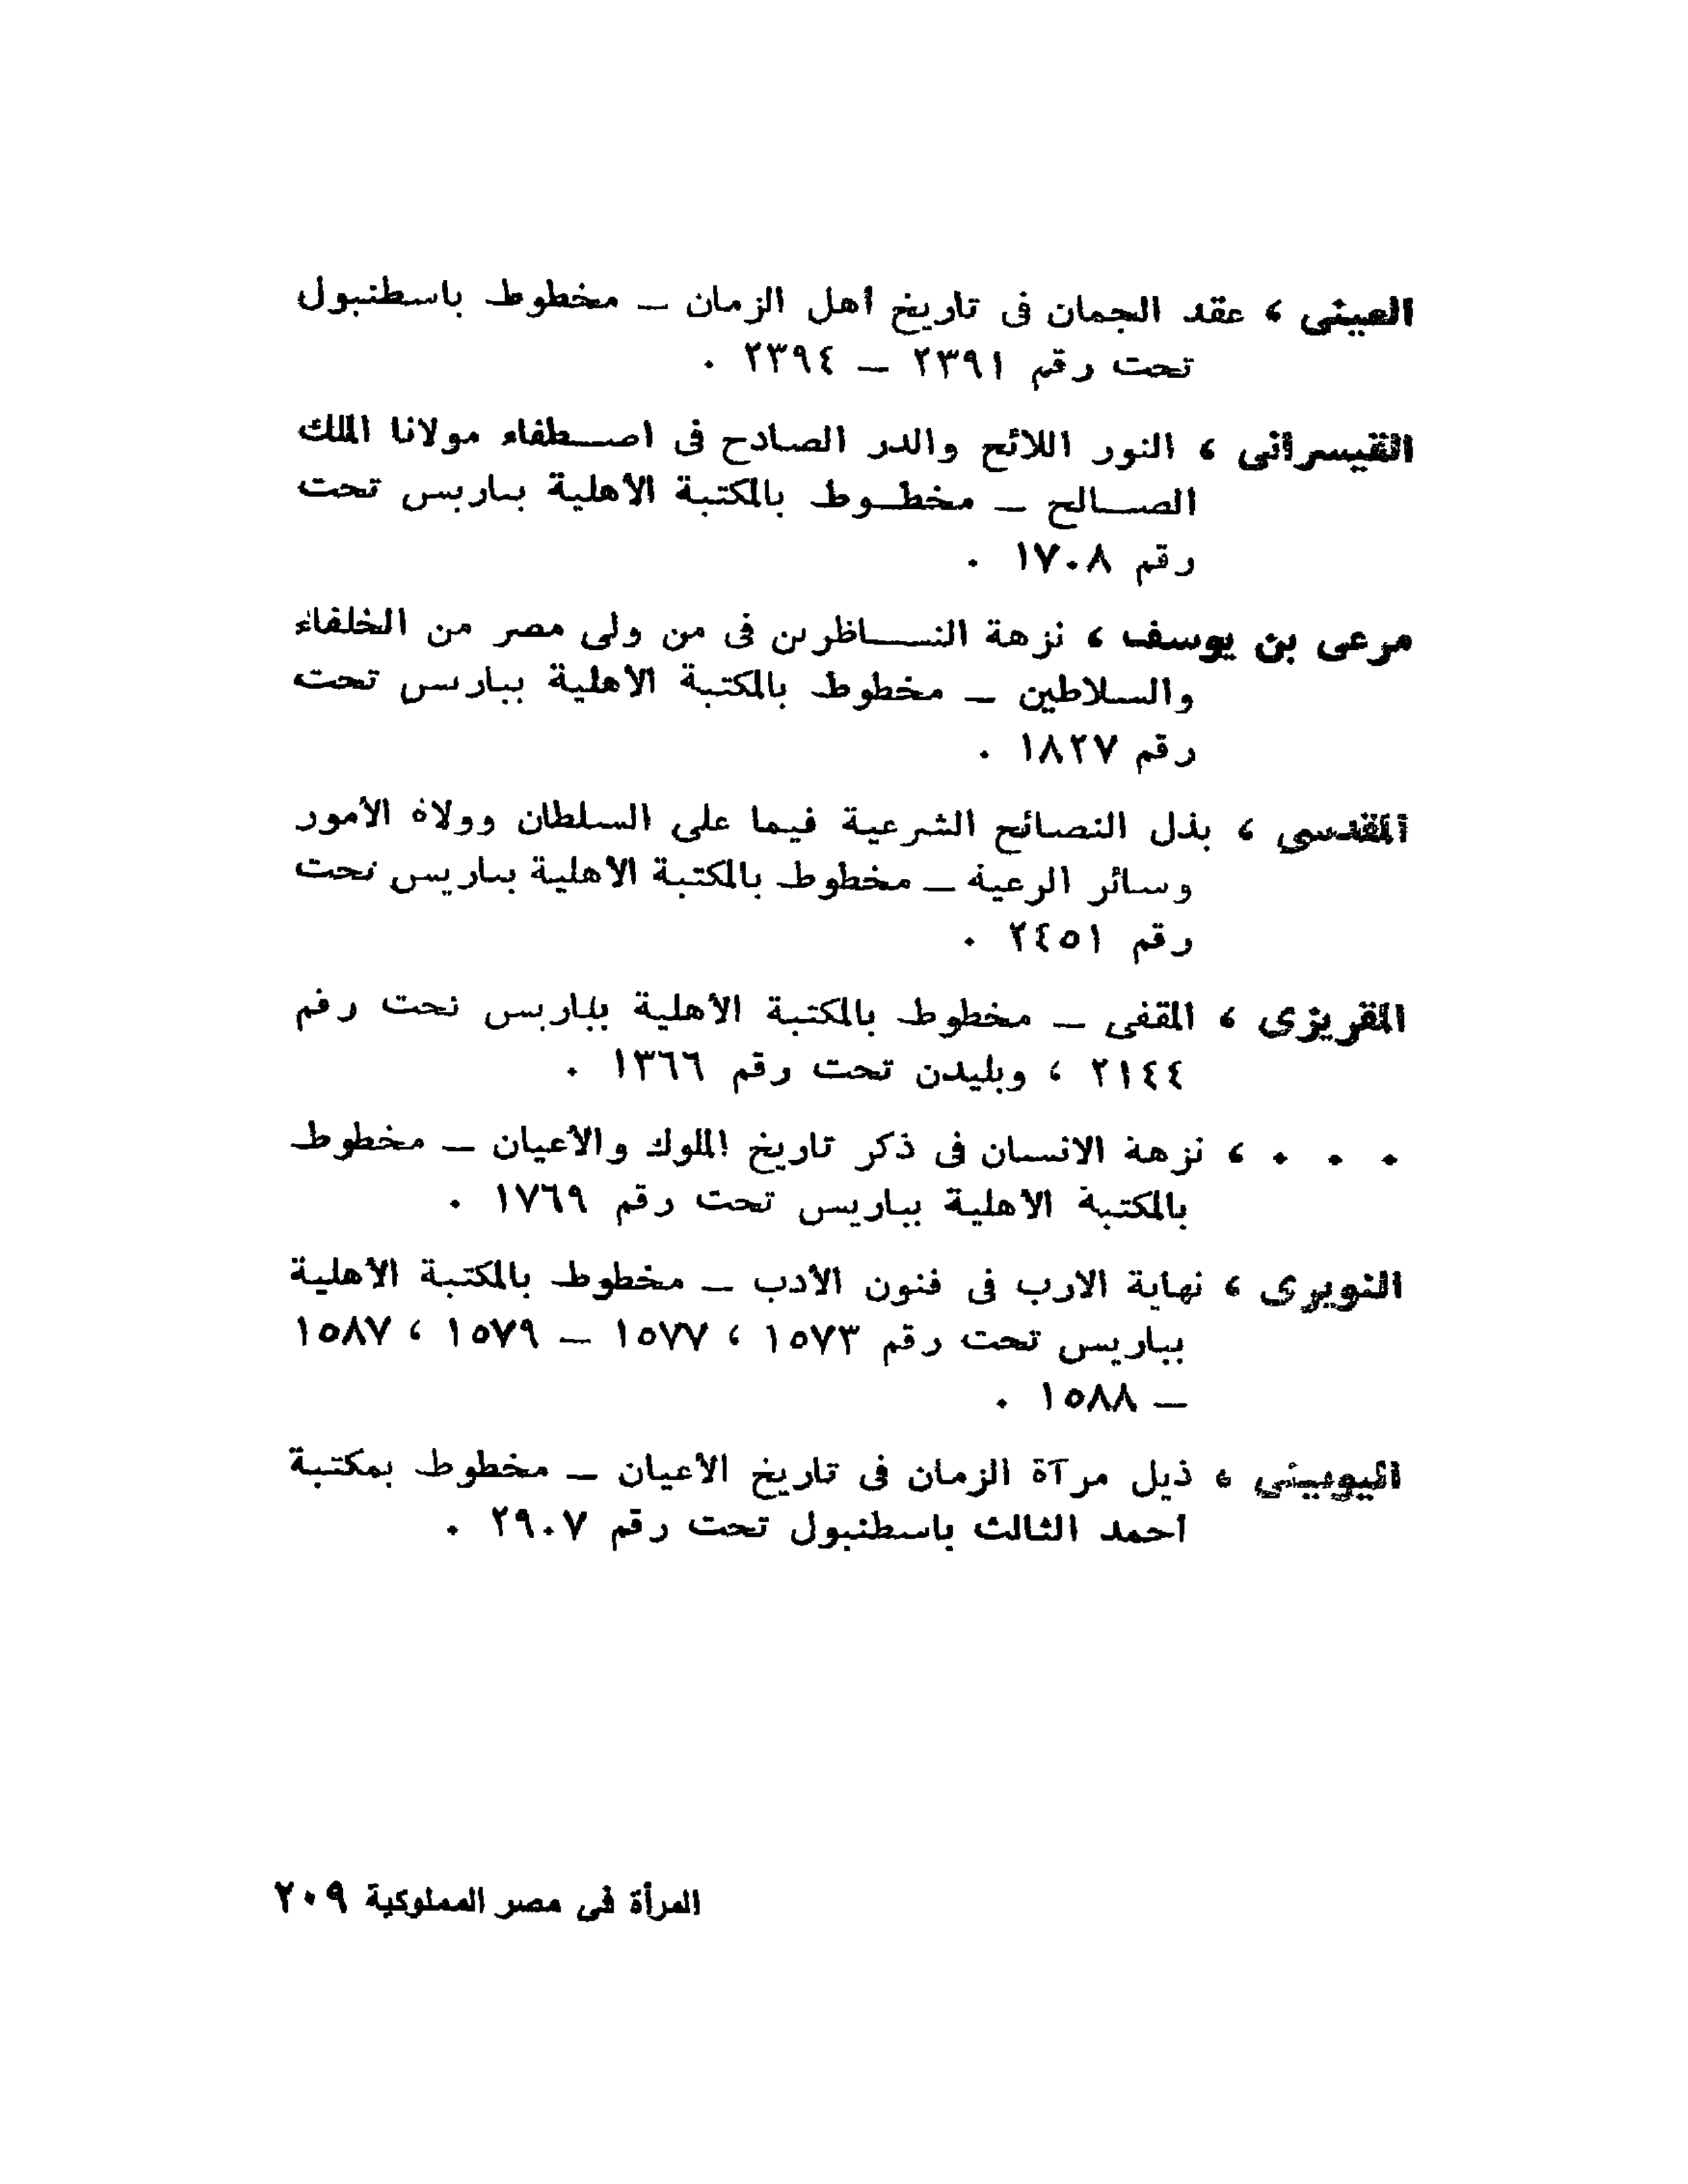 العينى ، عقد الجمان فى تاريخ أهل الزمان – مخطوط باسطنبول
تحت رقم ٢٣٩١ – ٢٣٩٤ .
القيسرانى ، النور اللائح والدر الصادح فى اصطفاء مولانا الملك
الصالح – مخطوط بالمكتبة الأهلية بباريس تحت
رقم ١٧٠٨ .
مرعى بن يوسف ، نزهة الناظرين فى من ولى مصر من الخلفاء
والسلاطين – مخطوط بالمكتبة الأهلية بباريس تحت
رقم ١٨٢٧ .
المقدسى ، بذل النصائح الشرعية فيما على السلطان وولاة الأمور
وسائر الرعية – مخطوط بالمكتبة الأهلية بباريس تحت
رقم ٢٤٥١ .
المقريزى ، المقفى – مخطوط بالمكتبة الأهلية بباريس تحت رقم
٢١٤٤ ، وبليدن تحت رقم ١٣٦٦ .
. . . ، نزهة الانسان فى ذكر تاريخ الملوك والأعيان – مخطوط
بالمكتبة الأهلية بباريس تحت رقم ١٧٦٩ .
النويرى ، نهاية الارب فى فنون الأدب – مخطوط بالمكتبة الأهلية
بباريس تحت رقم ١٥٧٣ ، ١٥٧٧ – ١٥٧٩ ، ١٥٨٧
– ١٥٨٨ .
اليونينى ، ذيل مرآة الزمان فى تاريخ الأعيان – مخطوط بمكتبة
أحمد الثالث باسطنبول تحت رقم ٢٩٠٧ .
المرأة فى مصر المملوكية ٢٠٩